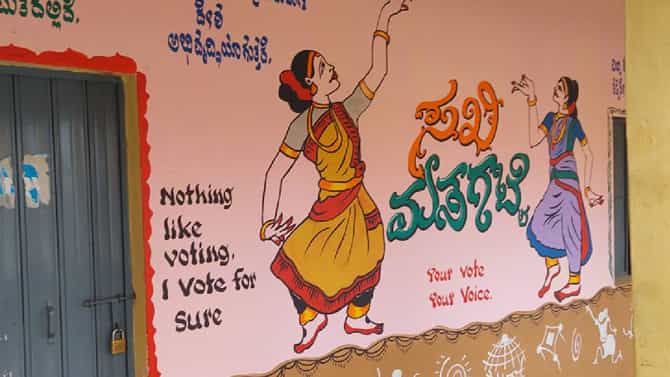 ದೇಶ
ಅಭಿವೃದ್ಧಿಯಾಗುತ್ತದೆ.
ಸಖಿ
ಮತಗಟ್ಟೆ
Nothing
like
voting,
I vote for
Sure
Your vote
Your Voice.